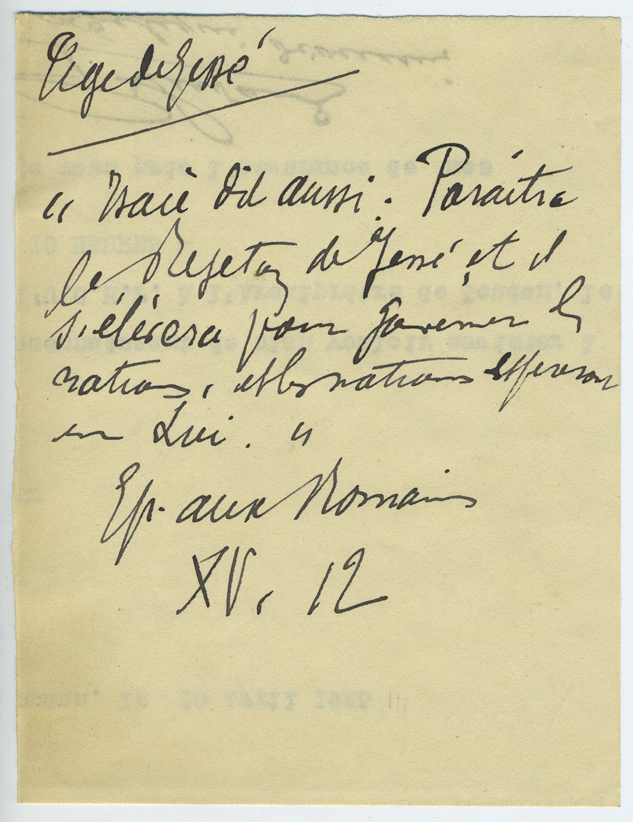 Tige de Jessé
" Isaïe dit aussi. Paraîtra
le Rejeton de Jessé et il
s'élèvera pour gouverner les
nations, et les nations espéreront
en Lui. "
Ep. aux Romains
XV, 12